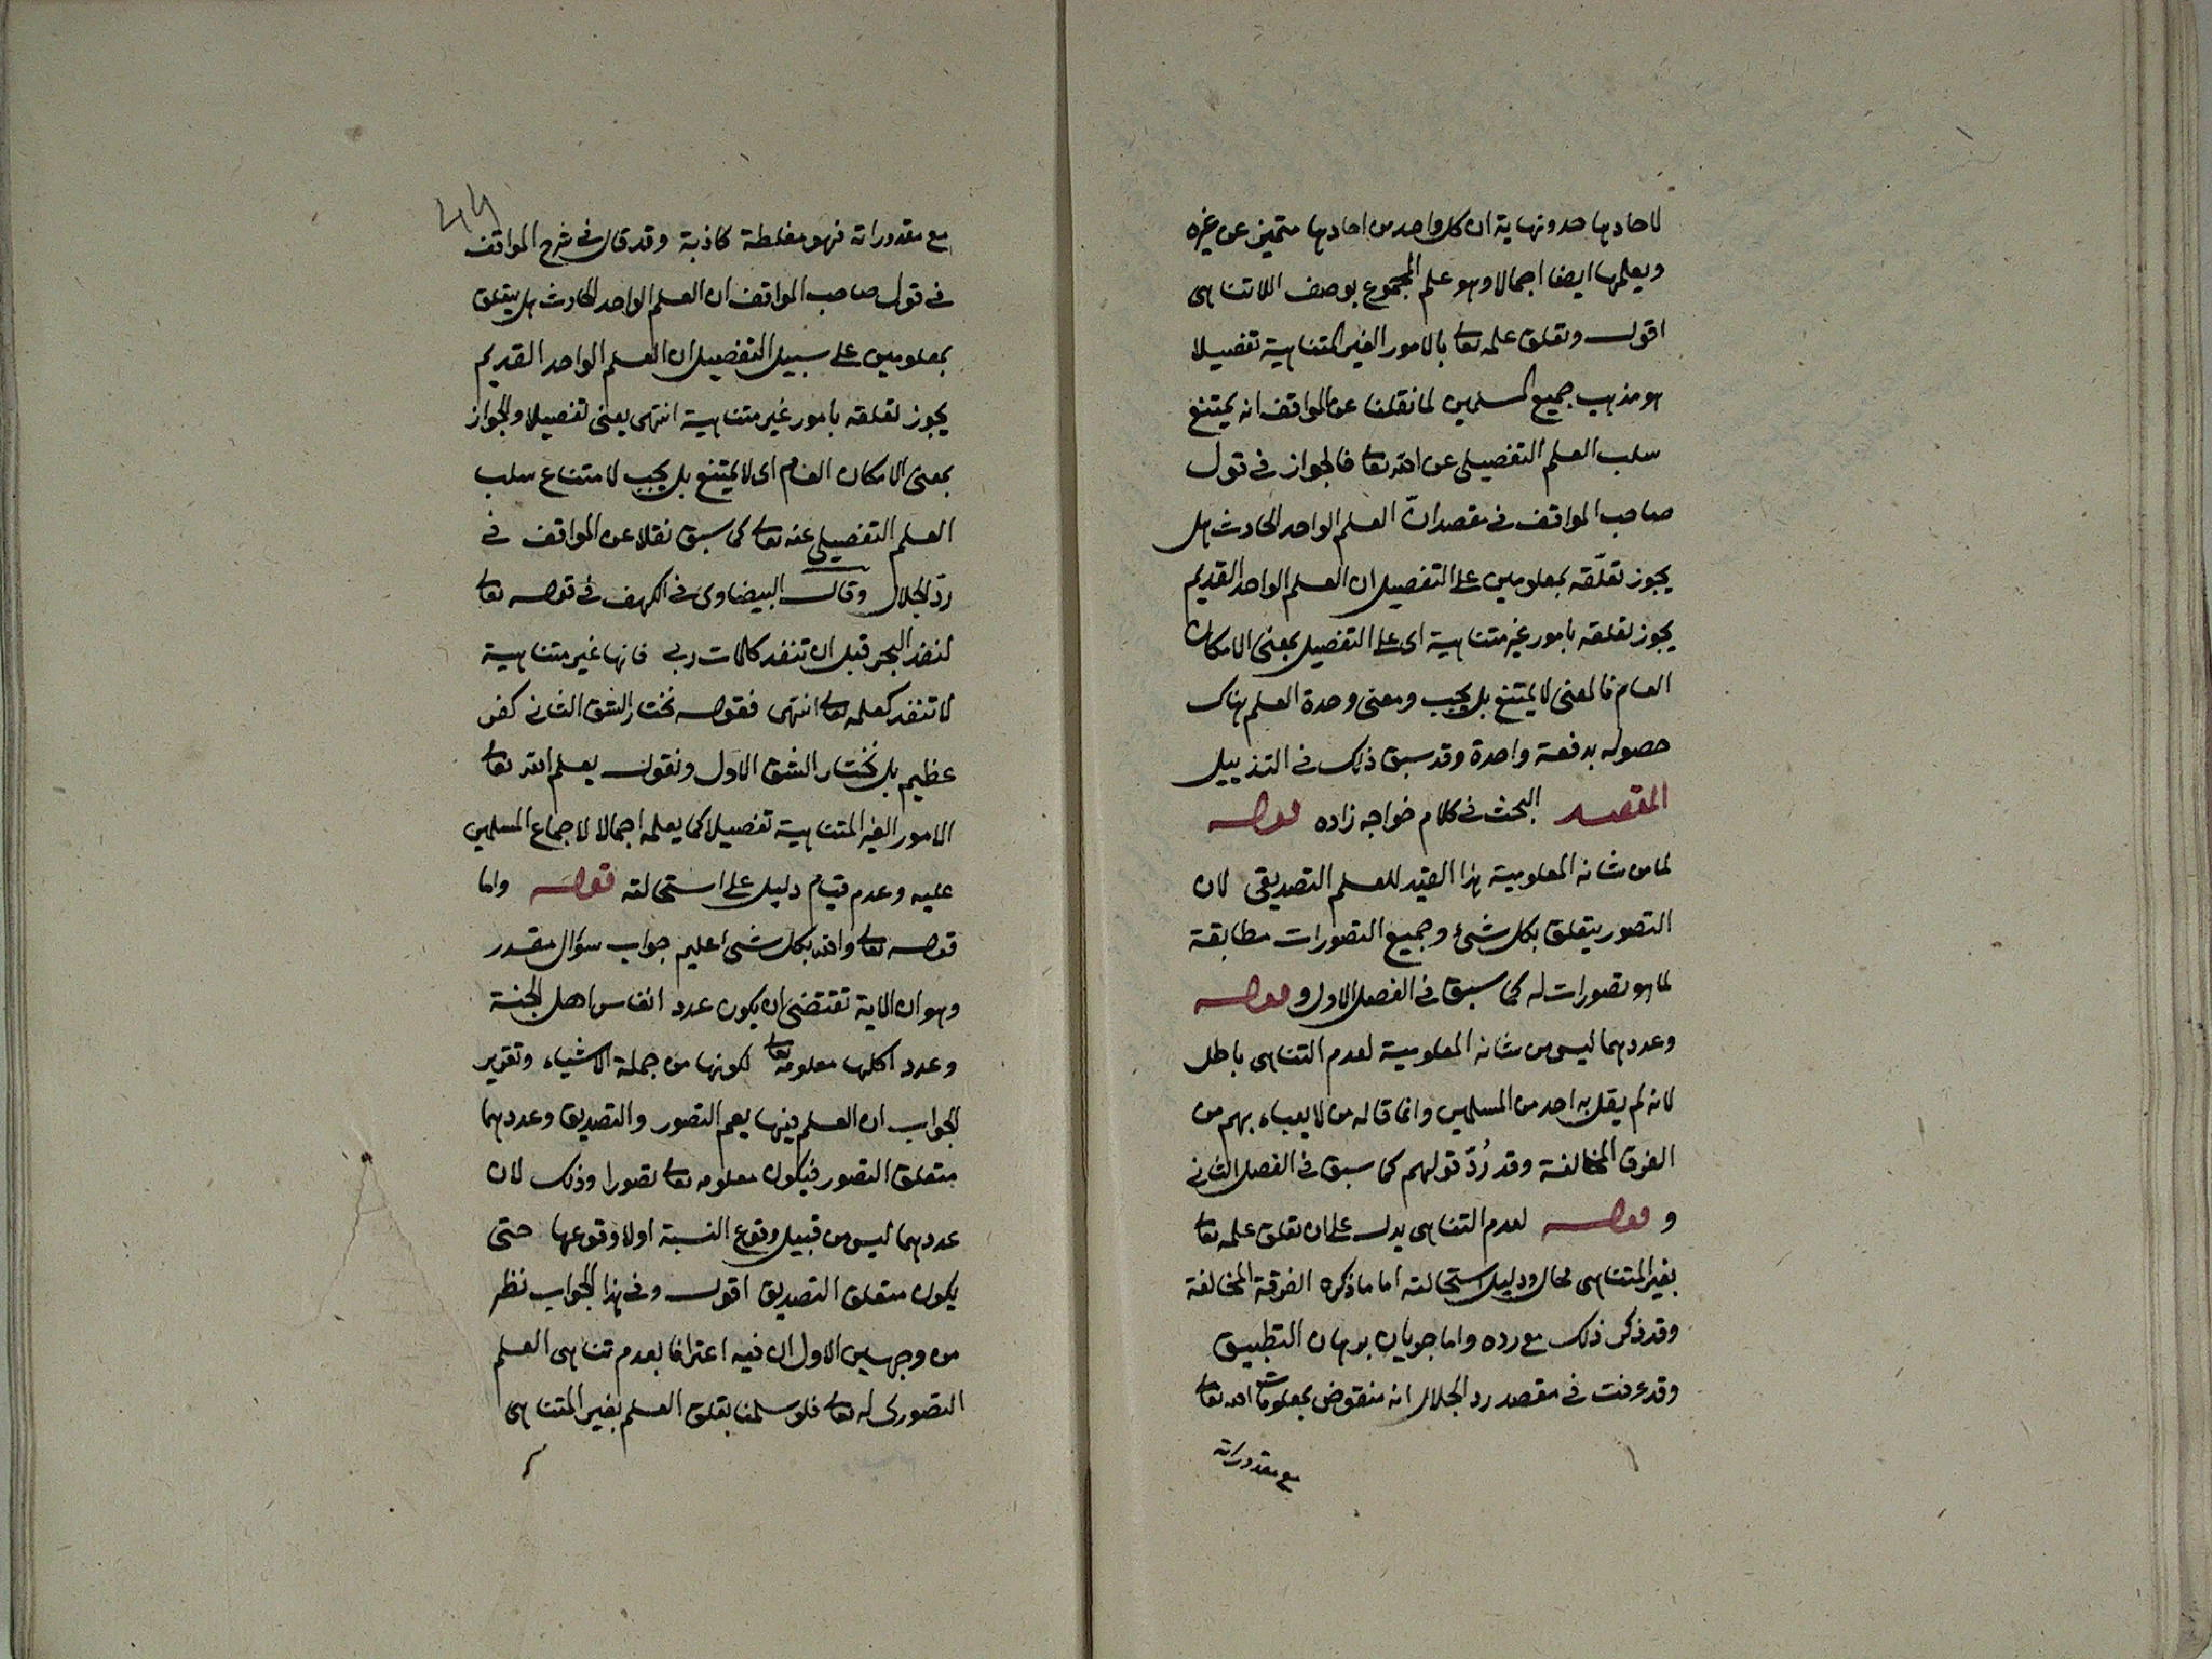 لاحادها حد ونهاية ان كل واحد من احادها متميز عن غيره
ويعلمها ايضا اجمالا وهو علم المجموع بوصف اللاتناهى
اقول وتعلق علمه تعالى بالامور الغير المتناهية تفصيلا
هو مذهب جميع المسلمين لما نقلنا عن المواقف انه يمتنع
سلب العلم التفصيلى عن الله تعالى فالجواز فى قول
صاحب المواقف فى مقصد انّ العلم الواحد الحادث هل
يجوز تعلّقه بمعلومين على التفصيل ان العلم الواحد القديم
يجوز تعلقه بامور غير متناهية اى على التفصيل بمعنى الامكان
العام فالمعنى لا يمتنع بل يجب ومعنى وحدة العلم هناك
حصوله بدفعة واحدة وقد سبق ذلك فى التذييل
المقصد البحث فى كلام خواجه زاده قوله
لما من شانه المعلومية هذا القيد للعلم التصديقى لان
التصور يتعلق بكل شئ وجميع التصورات مطابقة
لما هو تصورات له كما سبق فى الفصل الاول و قوله
وعددهما ليس من شانه المعلومية لعدم التناهى باطل
لانه لم يقل به احد من المسلمين وانما قاله من لا يعباء بهم من
الفرق المخالفة وقد رُدّ قولهم كما سبق فى الفصل الثانى
و قوله لعدم التناهى يدل على ان تعلق علمه تعالى
بغير المتناهى محال ودليل استحالته اما ما ذكره الفرقة المخالفة
وقد ذكر ذلك مع رده واما جريان برهان التطبيق
وقد عرفت فى مقصد رد الجلال انه منقوض بمعلومات الله تعالى
مع مقدوراته
مع مقدوراته فهو مغلطة كاذبة وقد قال فى شرح المواقف
فى قول صاحب المواقف ان العلم الواحد الحادث هل يتعلق
بمعلومين على سبيل التفصيل ان العلم الواحد القديم
يجوز تعلقه بامور غير متناهية انتهى يعنى تفصيلا والجواز
بمعنى الامكان العام اى لا يمتنع بل يجب لامتناع سلب
العلم التفصيلى عنه تعالى كما سبق نقلا عن المواقف فى
ردّ الجلال وقال البيضاوى فى الكهف فى قوله تعالى
لنفد البحر قبل ان تنفد كلمات ربى فانها غير متناهية
لا تنفد كعلمه تعالى انتهى فقوله نختار الشق الثانى كفر
عظيم بل نختار الشق الاول ونقول يعلم الله تعالى
الامور الغير المتناهية تفصيلا كما يعلمه اجمالا لاجماع المسلمين
عليه وعدم قيام دليل على استحالته قوله واما
قوله تعالى والله بكل شئ عليم جواب سؤال مقدر
وهو ان الاية تقتضى ان يكون عدد انفاس اهل الجنة
وعدد اكلها معلومه تعالى لكونها من جملة الاشياء وتقرير
الجواب ان العلم فيها يعم التصور والتصديق وعددهما
متعلق التصور فيكون معلومه تعالى تصورا وذلك لان
عددهما ليس من قبيل وقوع النسبة او لا وقوعها حتى
يكون متعلق التصديق اقول وفى هذا الجواب نظر
من وجهين الاول ان فيه اعترافا بعدم تناهى العلم
التصورى له تعالى فلو سلمنا تعلق العلم بغير المتناهى